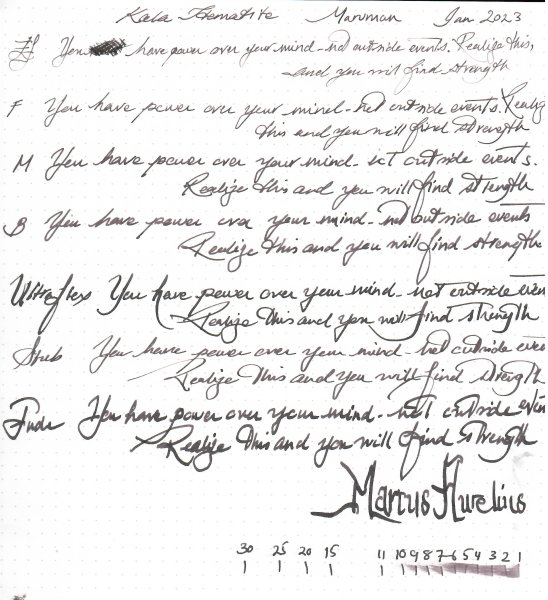 Kala Hematite Maruman Jan 2023
EF You have power over your mind - not outside events. Realize this,
and you will find strength
F You have power over your mind - not outside events. Realiz
this and you will find strength
M You have power over your mind - not outside events.
Realize this and you will find strength
B You have power over your mind - not outside events
Realize this and you will find strength
Ultraflex You have power over your mind - not outside even
Realize this and you will find strength
Stub You have power over your mind - not outside even
Realize this and you will find strength
Fude You have power over your mind - not outside even
Realize this and you will find strength
Marcus Aurelius
30 25 20 15 11 10 9 8 7 6 5 4 3 2 1